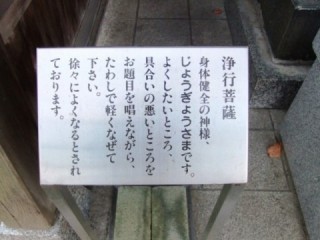 浄行菩薩
身体健全の神様、
じょうぎょうさまです。
よくしたいところ、
具合いの悪いところを
お題目を唱えながら、
たわしで軽くなぜて
下さい。
徐々によくなるとされ
ております。